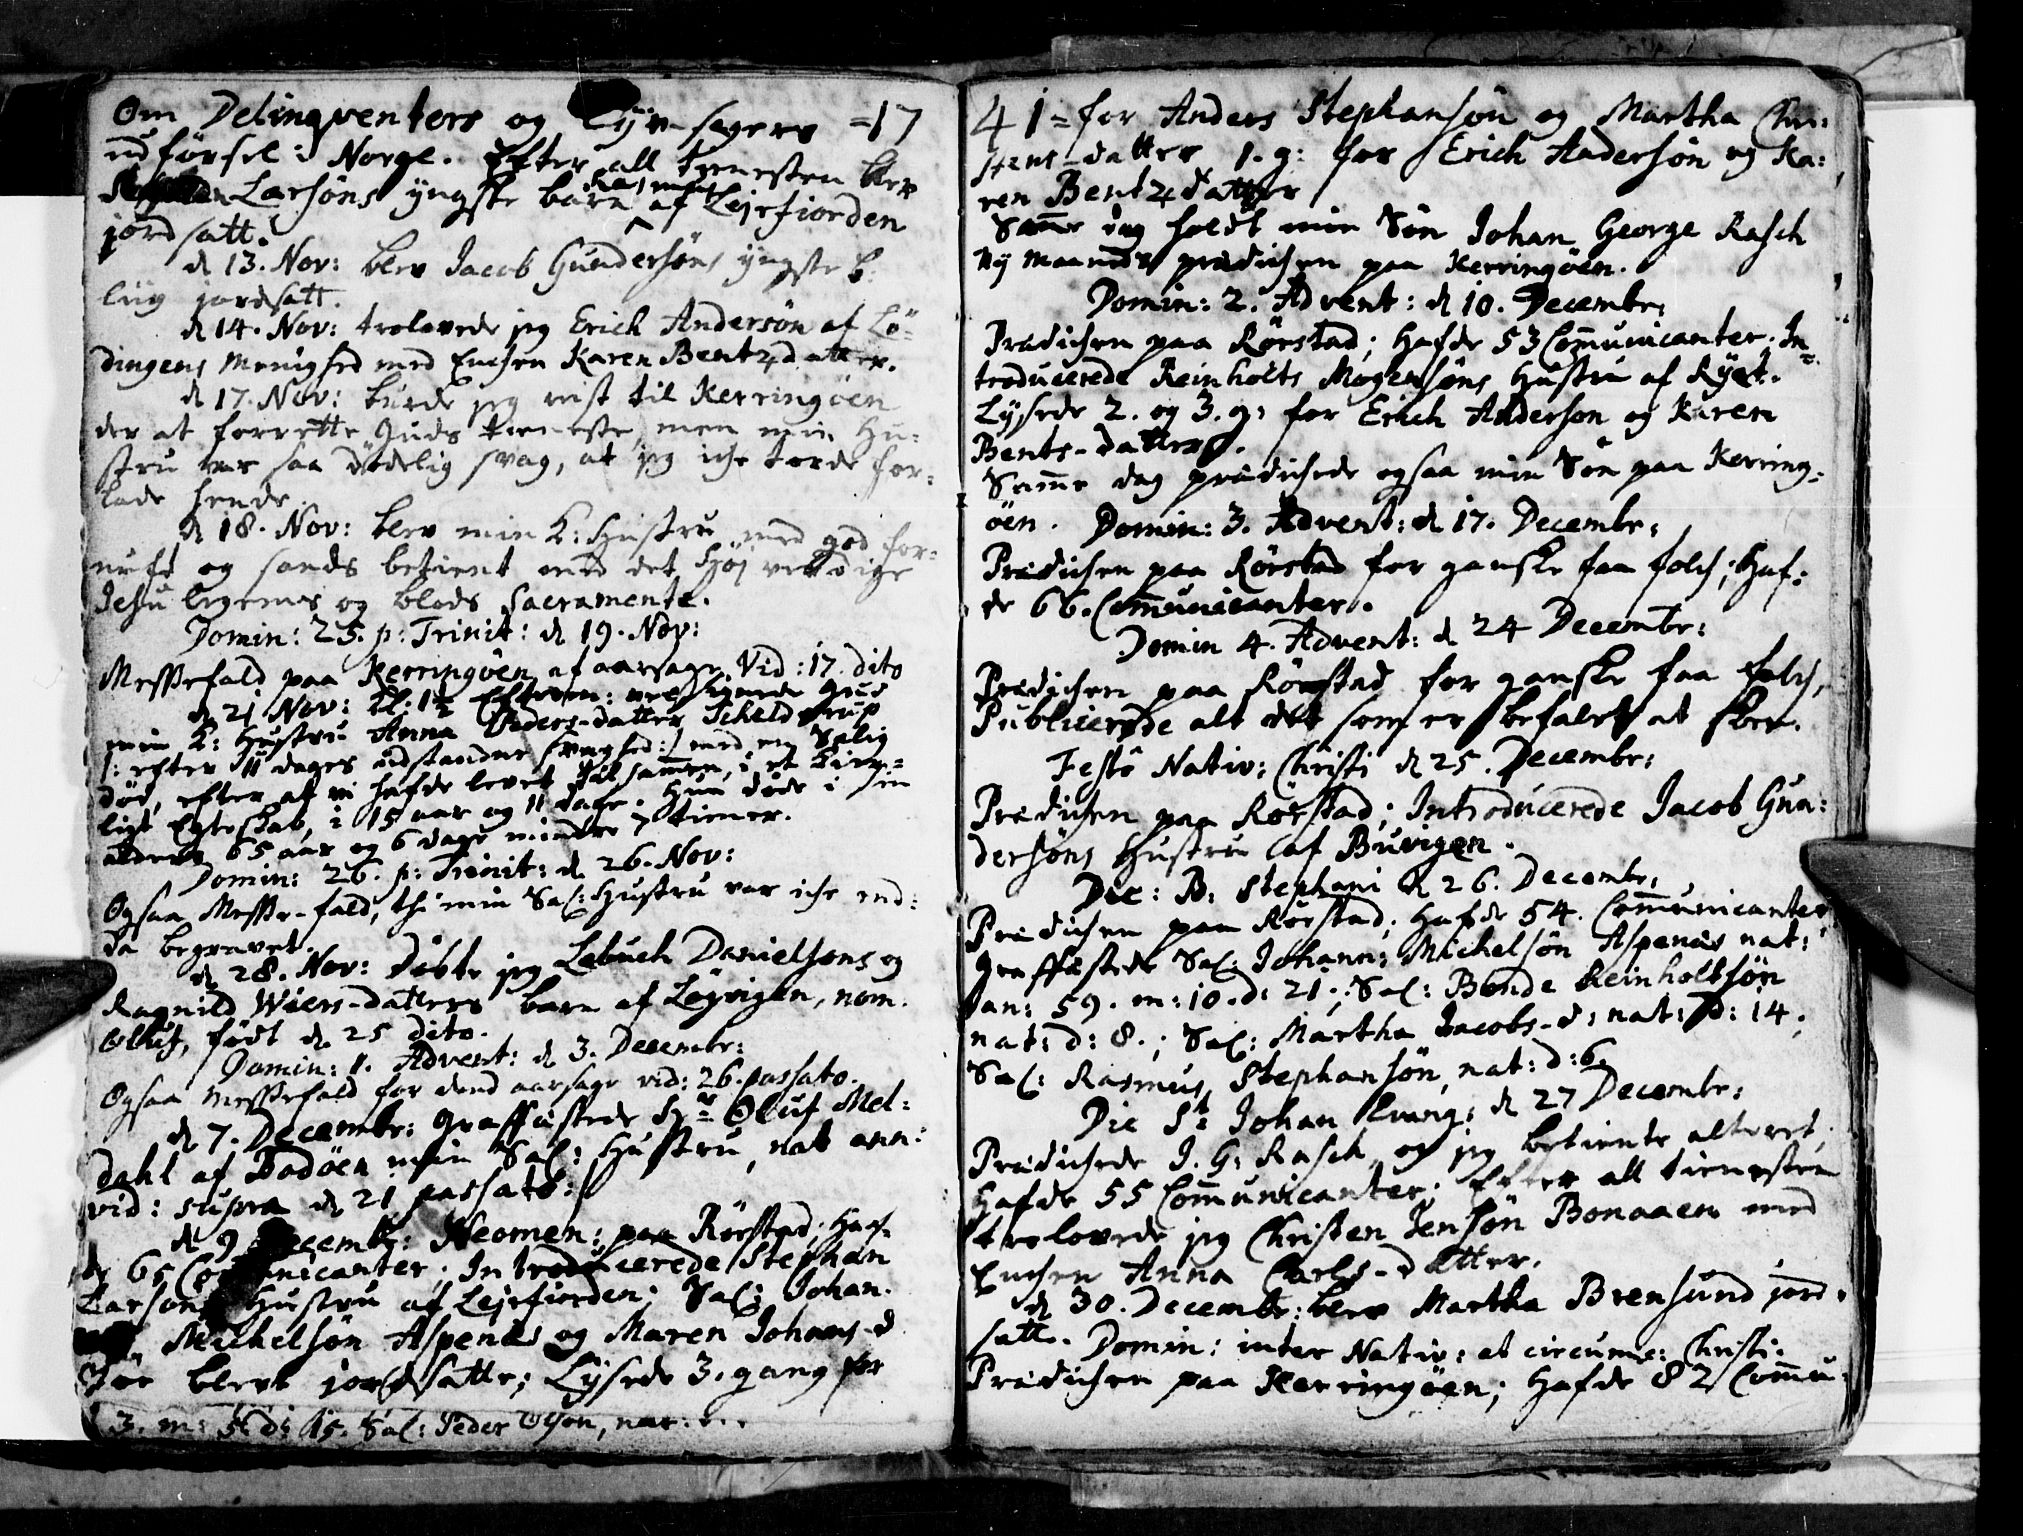 Om Delinqventers og Lÿv-sagers =17
udførsel i Norge. Efter all tienesten blev
Larsøns ÿngste barn af Lejrfiorden
Rasmus
jordsatt.
d 13. Nov: blev Jacob Gundersøns ÿngste b.
liig jordsatt.
d 14. Nov: trolovede jeg Erich Andersøn af Lø-
dingens Menighed med Enchen Karen Bentzdatter.
d 17. Nov: burde jeg reist til Kerringøen
der at forrette Guds tieneste, men min Hu-
stru var saa dødelig svag, at jeg iche torde for-
lade hende.
d 18. Nov: blev min K: Hustru med god for-
nuft og sands betient med det Høj værdige
Jesu legems og blods Sacramente.
Domin: 25. p: Trinit: d 19. Nov:
Messefald paa Kerringøen af aarsage Vid: 17. dito
d 21 Nov: Kl: 1½ Efterm: velsignede Gud
min K: Hustru Anna Peders-datter Scheldrup
/: efter 11 dages udstandne svaghed :/ med en Salig
død, efter at vi hafde levet tilsammen, i et Kier-
ligt Egteskab, i 15 aar og 11 dage. Hun døde i sin
alders 65 aar og 6 dage mindre 7 tiemer.
Domin: 26. p: Trinit: d 26. Nov:
Ogsaa Messe-fald, thi min Sal: Hustru var iche end-
da begravet.
d 28. Nov: Døbte jeg Labuch Danielsøns og
Ragnild Wiers-datters barn af Løgvigen, nom.
Oluf, født d 25 dito.
Domin: 1. Advent: d 3. Decembr:
Ogsaa Messefald for dend aarsage vid: 26. passato.
d 7. Decembr: Graffæstede Hr Oluf Mel-
dahl af Bodøen min Sal: Hustru, nat ann:
vid: supra d 21 passato:/
d 9 Decembr: Neomen: paa Rørstad; Haf-
de 65 Communicanter; Introducerede Stephan
Larsøns Hustru af Lejrfiorden; Sal: Johan.
Michelsøn Aspenæs og Maren Johans-d
Tør bleve jordsatte; Lÿsede 3. gang for
3. m: 5 d: 15. Sal: Peder Olsøn, nat:
41= for Anders Stephansøn og Martha Chri:
stens-datter 1. g: for Erich Andersøn og Ka:
ren Bentzdatter
Samme dag holdt min Søn Johan George Rasch
Nÿ Maaneds prædichen paa Kerringøen.
Domin: 2. Advent: d 10. Decembr:
Prædichen paa Rørstad; Hafde 53 Communicanter; In-
troducerede Reinholts Mogensøns Hustru af Rÿet.
Lÿsede 2. og 3. g: for Erich Anderson og Karen
Bents-datter.
Samme dag prædichede ogsaa min Søn paa Kerring-
øen. Domin: 3. Advent: d 17. Decembr:
Prædichen paa Rørstad for ganske faa folch; Haf-
de 66. Communicanter.
Domin 4. Advent: d 24 Decembr:
Prædichen paa Rørstad for ganske faa folch,
Publicerede alt det som er befalet at skee.
Festô Nativ: Christi d 25. Decembr:
Prædichen paa Rørstad; Introducerede Jacob Gun:
dersøns Hustru af Buvigen.
Die: B: Stephani d 26. Decembr:
Prædichen paa Rørstad; Hafde 54. Communicanter
Graffæstede Sal: Johann: Michelsøn Aspenæs nat:
an: 59. m: 10. d: 21.; Sal: Bende Reinholtsøn
nat: d: 8.; Sal: Martha Jacobs-d: nat: d: 14;
Sal: Rasmus Stephansøn, nat: d: 6.
Die St Johan Evang: d 27 Decembr:
Prædichede J. G: Rasch, og jeg betiente alteret;
Hafde 55 Communicanter; Efter all tienesten
trolovede jeg Christen Jensøn Bonaaen med
Enchen Anna Carls-datter.
d 30. Decembr: blev Martha Brensund jord-
satt. Domin: inter Nativ: et circumc: Christi.
Prædichen paa Kerringøen; Hafde 82 Commu-